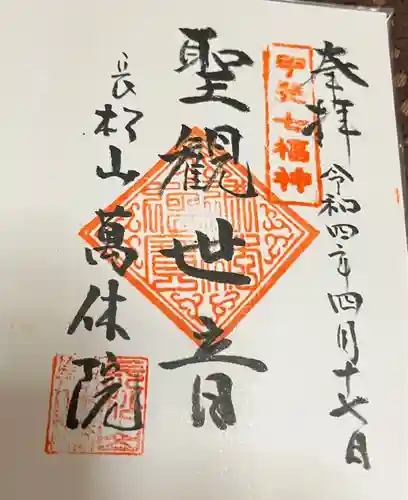 奉拝
令和四年四月十七日
甲斐七福神
聖観世音
長松山
萬休院